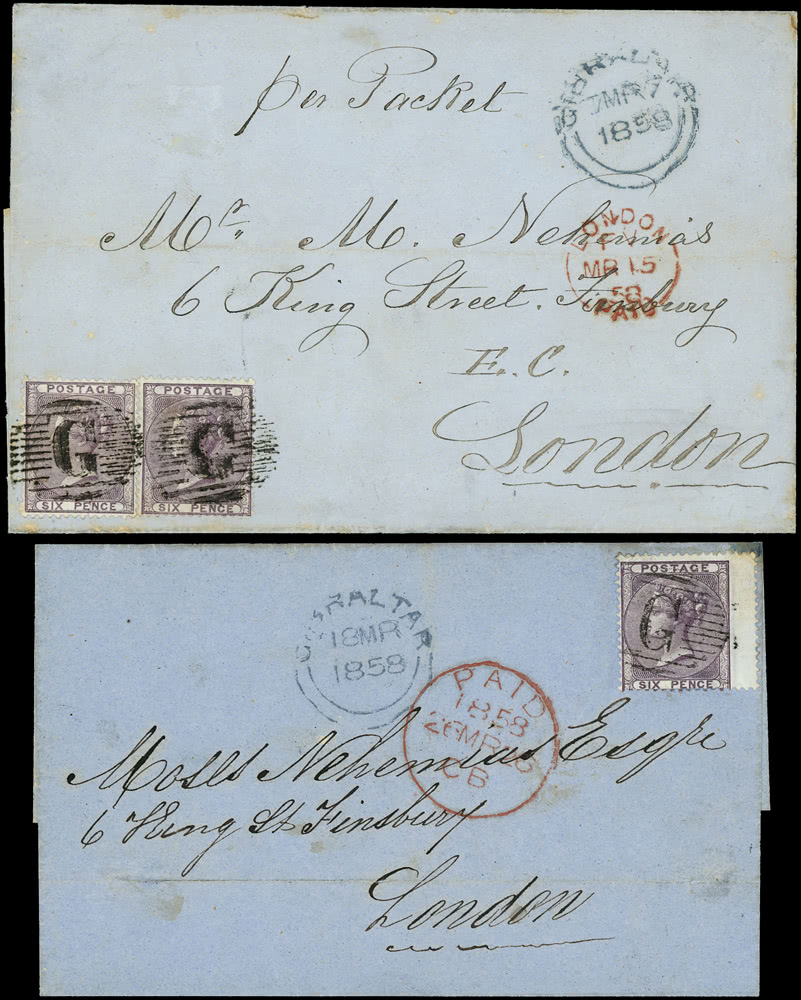 per Packet
GIBRALTAR
MR 7
1858
Mr. M. Nehemias
LONDON
MR 15
58
PAID
6 King Street. Finsbury
E. C.
London
POSTAGE
SIX PENCE
POSTAGE
SIX PENCE
POSTAGE
G
SIX PENCE
GIBRALTAR
18 MR
1858
PAID
1858
26 MR 26
CB
Moses Nehemias Esqre
6 King St Finsbury
London